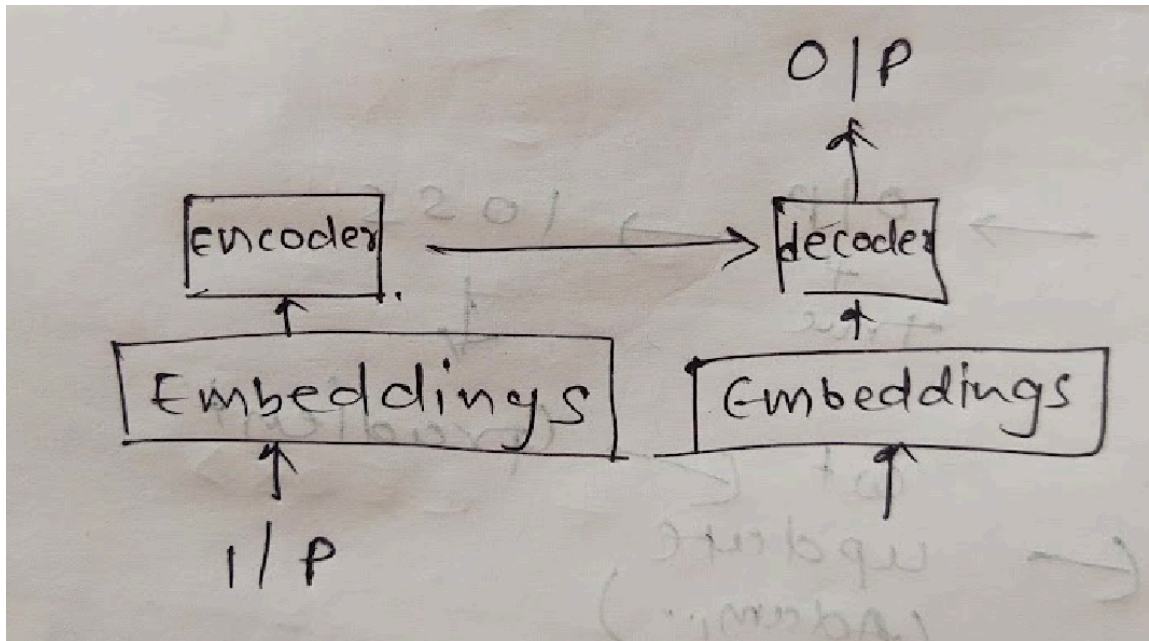 O/P
encoder
decoder
Embeddings
Embeddings
I/P